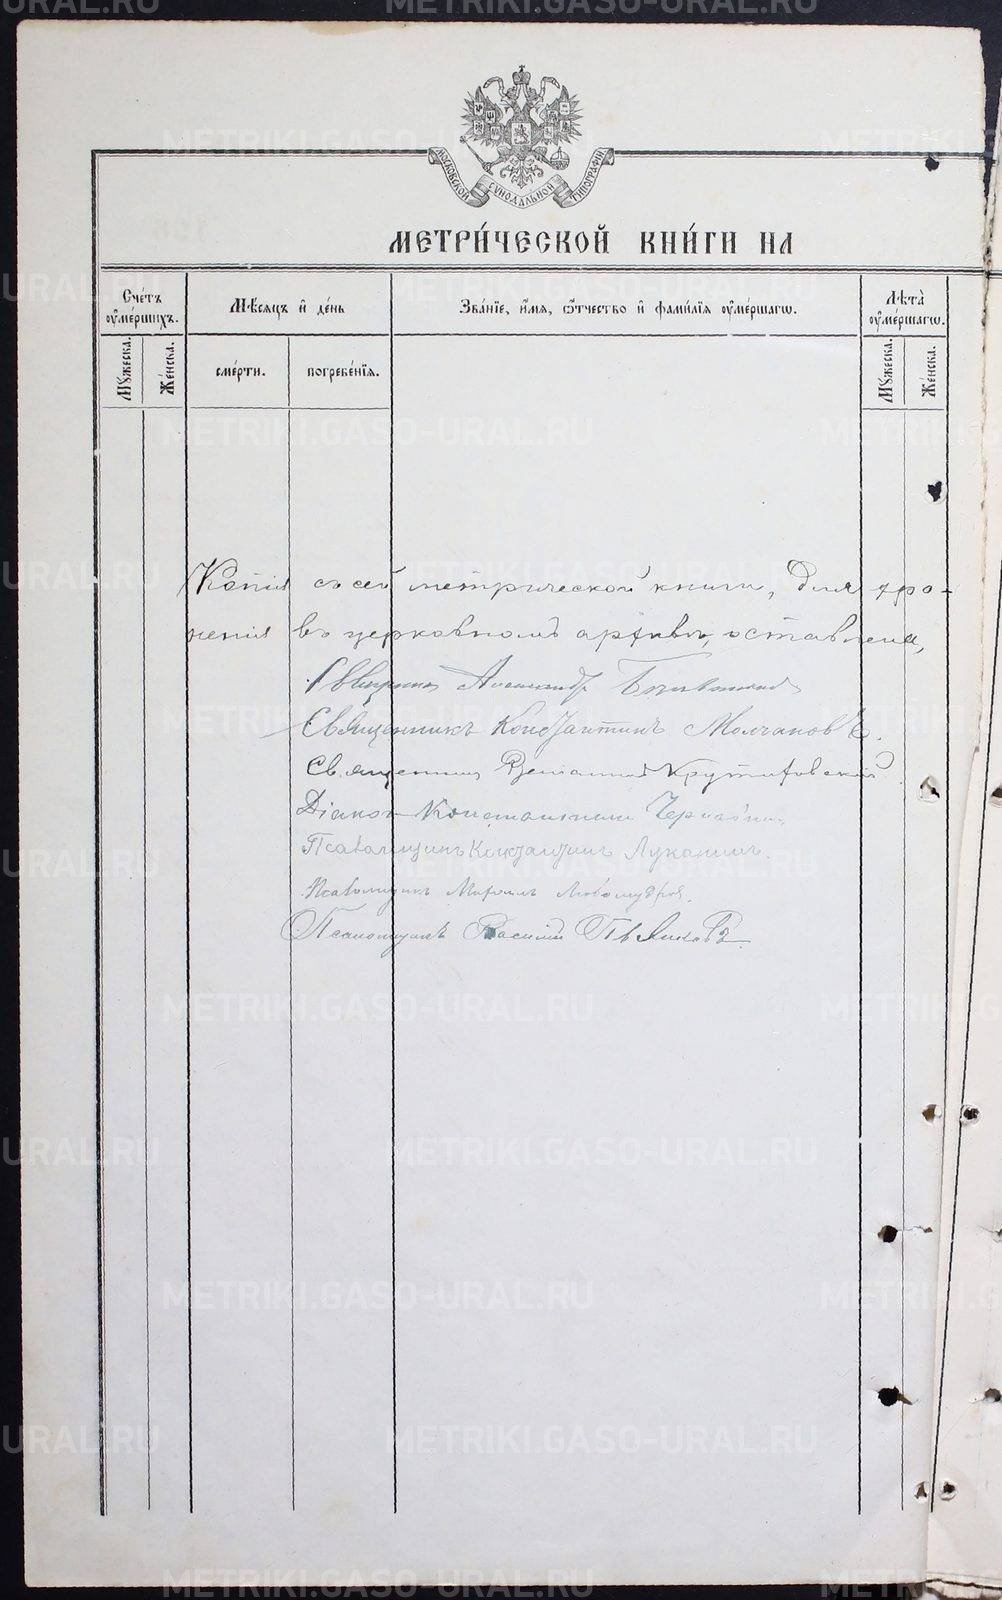 МОСКОВСКОЙ СѴНОДАЛЬНОЙ ТИПОГРАФІИ
МЕТРИ́ЧЕСКОЙ КНИ́ГИ НА
Сче́тъ ᲂумершихъ.
Мѣсяцъ и де́нь
Зва́нїе, и́мѧ, ѻ҆́тчество и фами́лїѧ ᲂумершагѡ.
Лѣта̀ ᲂумершагѡ.
Мꙋжеска.
Же́нска.
сме́рти.
погребе́нїѧ.
Мꙋжеска.
Же́нска.
Копія съ сей метрической книги, для хра-
ненія въ церковномъ архивѣ, оставлена,
Священникъ Александръ
Священникъ Константинъ Молчановъ.
Священникъ Веніаминъ
Діаконъ Константинъ
Псаломщикъ Константинъ Луканинъ.
Псаломщикъ Михаилъ Любомудровъ.
Псаломщикъ Василій
METRIKI.GASO-URAL.RU